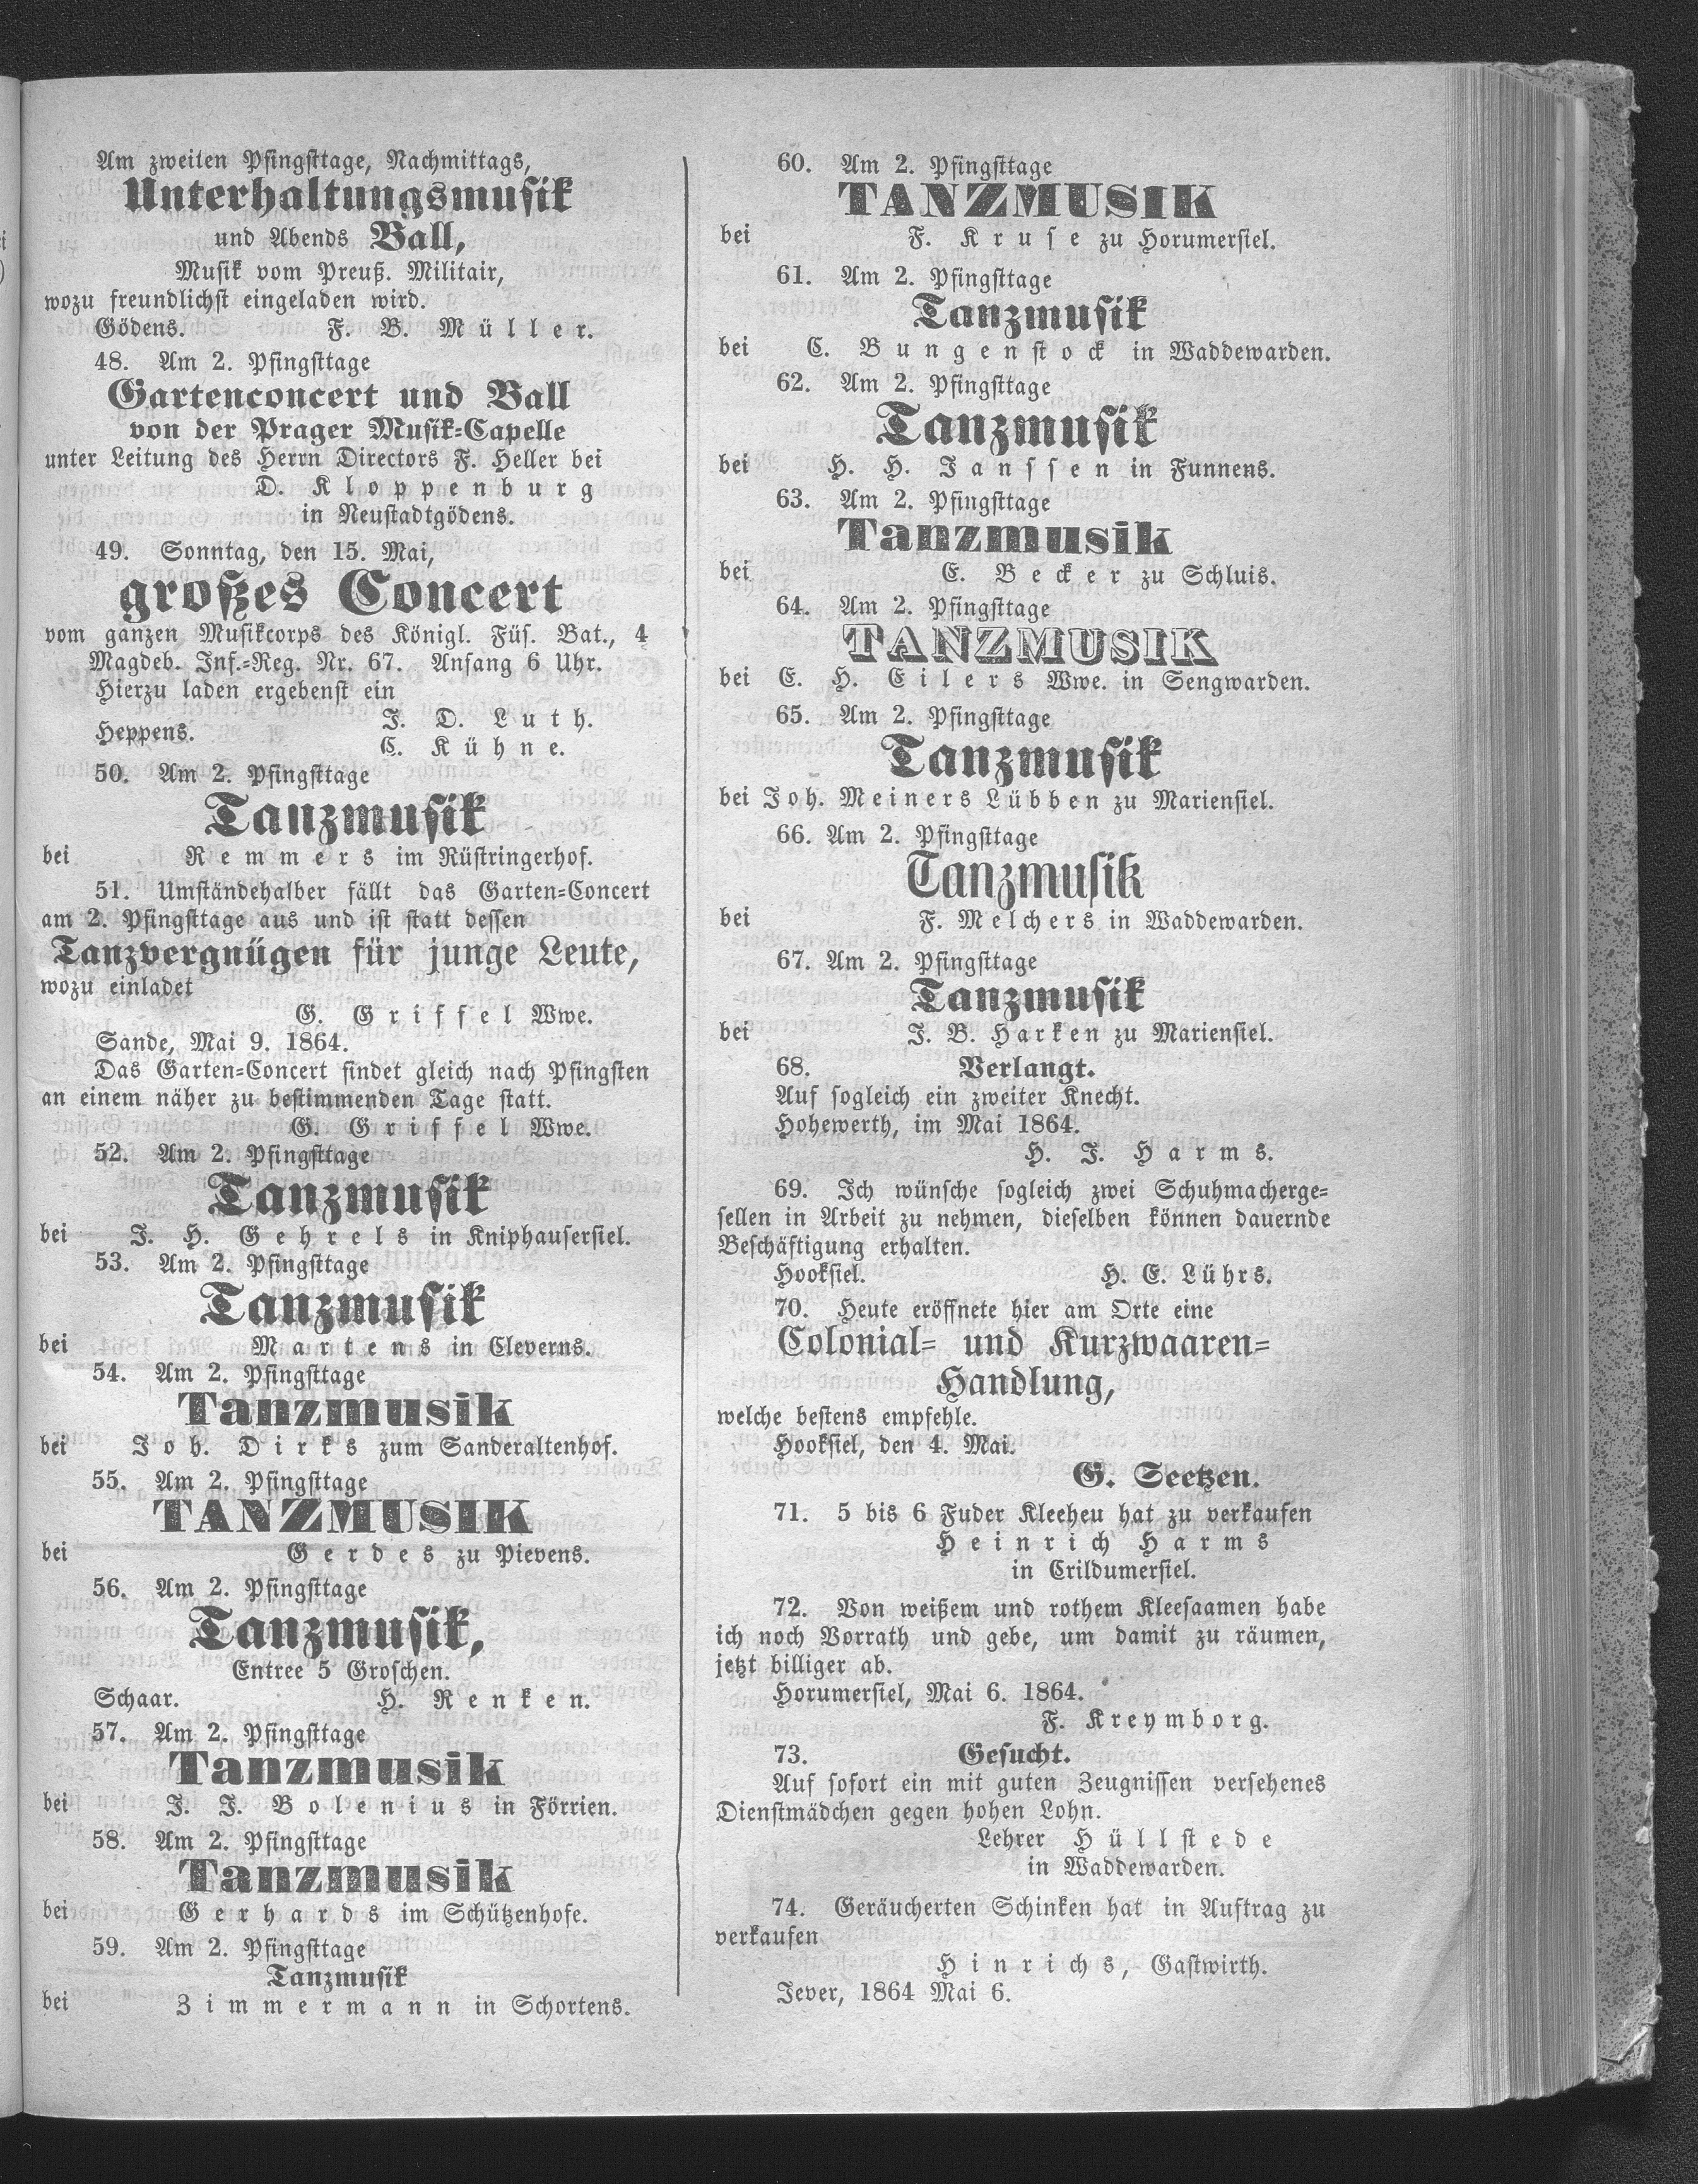 Am zweiten Pfingsttage, Nachmittags,
Unterhaltungsmusik
und Abends Ball,
Musik vom Preuß. Militair,
wozu freundlichst eingeladen wird.
Gödens. F. B. Müller.
48. Am 2. Pfingsttage
Gartenconcert und Ball
von der Prager Musik-Capelle
unter Leitung des Herrn Directors F. Heller bei
D. Kloppenburg
in Neustadtgödens.
49. Sonntag, den 15. Mai,
großes Concert
vom ganzen Musikcorps des Königl. Füs. Bat., 4
Magdeb. Inf.-Reg. Nr. 67. Anfang 6 Uhr.
Hierzu laden ergebenst ein
Heppens. J. D. Luth.
C. Kühne.
50. Am 2. Pfingsttage
Tanzmusik
bei Remmers im Rüstringerhof.
51. Umständehalber fällt das Garten-Concert
am 2. Pfingsttage aus und ist statt dessen
Tanzvergnügen für junge Leute,
wozu einladet
G. Griffel Wwe.
Sande, Mai 9. 1864.
Das Garten-Concert findet gleich nach Pfingsten
an einem näher zu bestimmenden Tage statt.
G. Griffel Wwe.
52. Am 2. Pfingsttage
Tanzmusik
bei J. H. Gehrels in Kniphausersiel.
53. Am 2. Pfingsttage
Tanzmusik
bei Martens in Cleverns.
54. Am 2. Pfingsttage
Tanzmusik
bei Joh. Dirks zum Sanderaltenhof.
55. Am 2. Pfingsttage
TANZMUSIK
bei Gerdes zu Pievens.
56. Am 2. Pfingsttage
Tanzmusik,
Entree 5 Groschen.
Schaar. H. Renken.
57. Am 2. Pfingsttage
Tanzmusik
bei J. J. Bolenius in Förrien.
58. Am 2. Pfingsttage
Tanzmusik
bei Gerhards im Schützenhofe.
59. Am 2. Pfingsttage
Tanzmusik
bei Zimmermann in Schortens.
60. Am 2. Pfingsttage
TANZMUSIK
bei F. Kruse zu Horumersiel.
61. Am 2. Pfingsttage
Tanzmusik
bei C. Bungenstock in Waddewarden.
62. Am 2. Pfingsttage
Tanzmusik
bei H. H. Janssen in Funnens.
63. Am 2. Pfingsttage
Tanzmusik
bei E. Becker zu Schluis.
64. Am 2. Pfingsttage
TANZMUSIK
bei E. H. Eilers Wwe. in Sengwarden.
65. Am 2. Pfingsttage
Tanzmusik
bei Joh. Meiners Lübben zu Mariensiel.
66. Am 2. Pfingsttage
Tanzmusik
bei F. Melchers in Waddewarden.
67. Am 2. Pfingsttage
Tanzmusik
bei J. B. Harken zu Mariensiel.
68. Verlangt.
Auf sogleich ein zweiter Knecht.
Hohewerth, im Mai 1864.
H. J. Harms.
69. Ich wünsche sogleich zwei Schuhmacherge-
sellen in Arbeit zu nehmen, dieselben können dauernde
Beschäftigung erhalten.
Hooksiel. H. E. Lührs.
70. Heute eröffnete hier am Orte eine
Colonial- und Kurzwaaren-
Handlung,
welche bestens empfehle.
Hooksiel, den 4. Mai.
G. Seetzen.
71. 5 bis 6 Fuder Kleeheu hat zu verkaufen
Heinrich Harms
in Crildumersiel.
72. Von weißem und rothem Kleesaamen habe
ich noch Vorrath und gebe, um damit zu räumen,
jetzt billiger ab.
Horumersiel, Mai 6. 1864.
F. Kreymborg.
73. Gesucht.
Auf sofort ein mit guten Zeugnissen versehenes
Dienstmädchen gegen hohen Lohn.
Lehrer Hüllstede
in Waddewarden.
74. Geräucherten Schinken hat in Auftrag zu
verkaufen
Hinrichs, Gastwirth.
Jever, 1864 Mai 6.